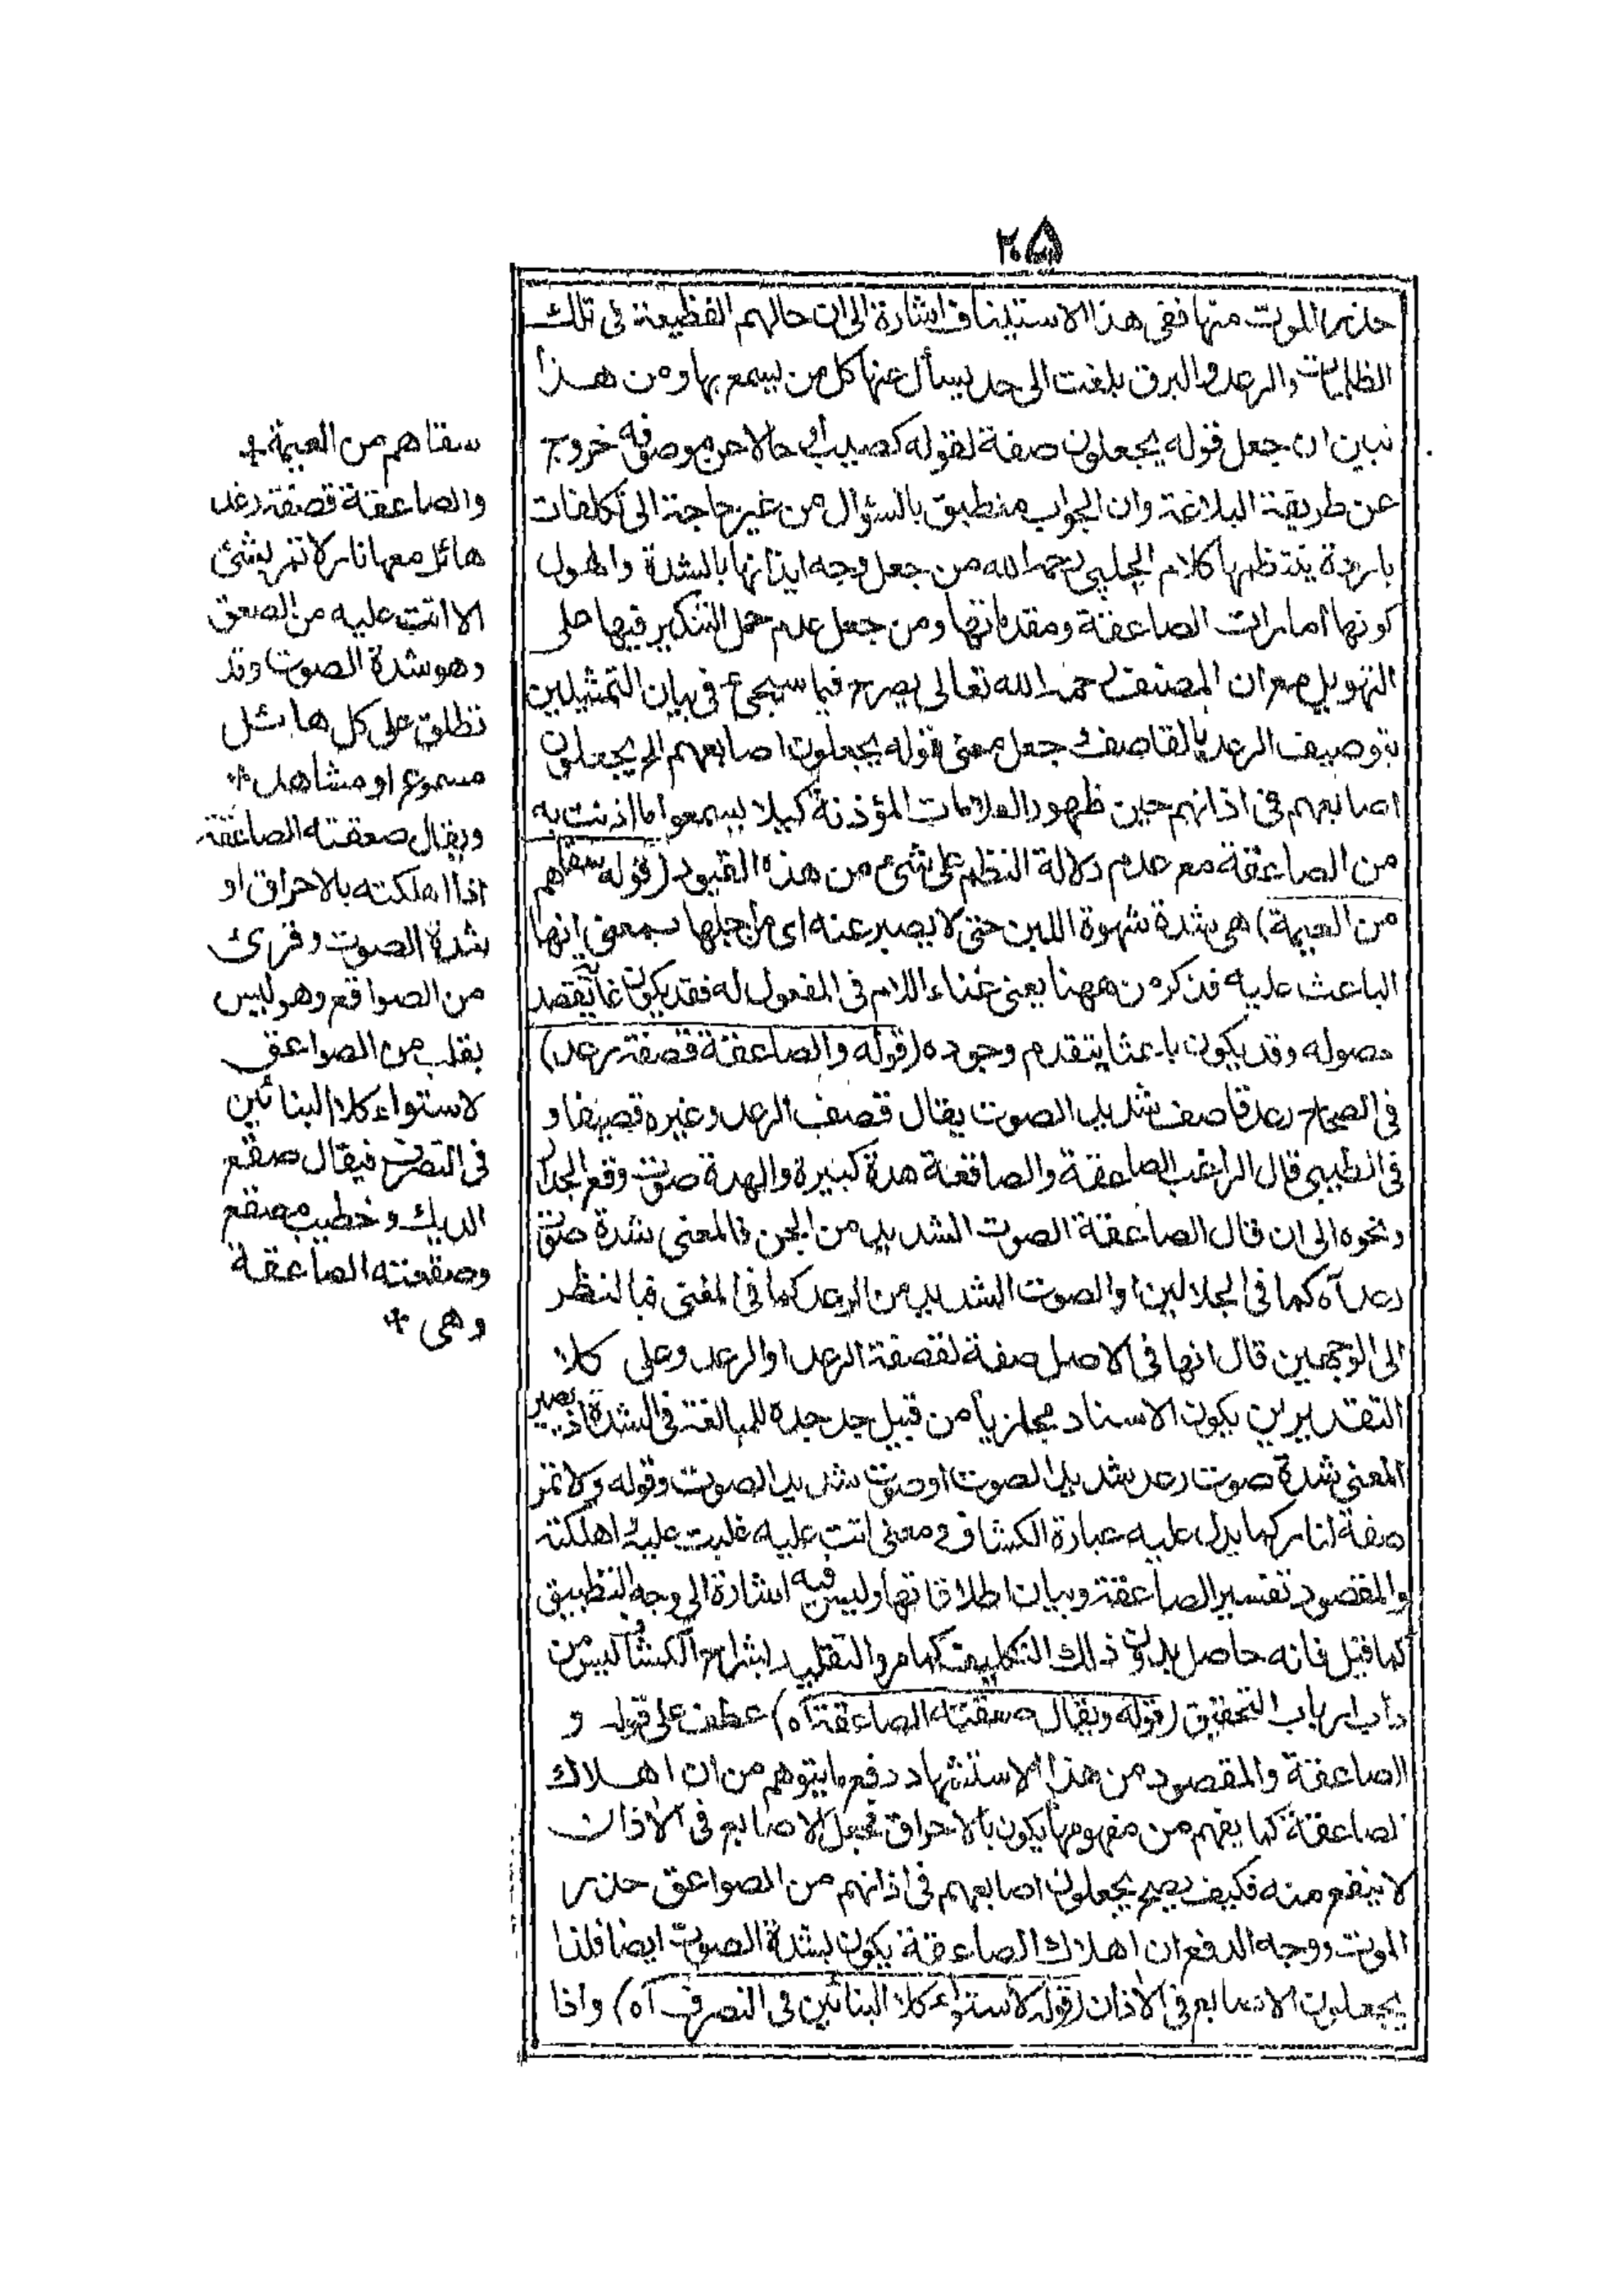 ٢٥
حذر الموت منها ففي هذا الاستيناف اشارة الى ان حالهم الفظيعة في تلك
الظلمات والرعد والبرق بلغت الى حد يسأل عنها كل من يسمع بها ومن هذا
تبين ان جعل قوله يجعلون صفة لقوله كصيب أو حالا من موصوفه خروج
عن طريقة البلاغة وان الجواب منطبق بالسؤال من غير حاجة الى تكلفات
باردة ينتظمها كلام الچلپي رحمه الله من جعل وجه ايذانها بالشدة والهول
كونها امارات الصاعقة ومقدماتها ومن جعل عدم حمل التنكير فيها على
التهويل مع ان المصنف رحمه الله تعالى يصرح فيما سيجئ في بيان التمثيلين
بتوصيف الرعد بالقاصف وجعل معنى قوله يجعلون اصابعهم الخ يجعلون
اصابعهم في اذانهم حين ظهور العلامات المؤذنة كيلا يسمعوا ما اذنت به
من الصاعقة مع عدم دلالة النظم على شئ من هذه القيود (قوله سقاهم
من العيمة) هى شدة شهوة اللبن حتى لا يصبر عنه اى من اجلها بمعنى انها
الباعث عليه فذكر من ههنا يعنى غناء اللام فى المفعول له فقد يكون غاية يقصد
حصوله وقد يكون باعثا يتقدم وجوده (قوله والصاعقة قصفة رعد)
فى الصحاح رعد قاصف شديد الصوت يقال قصف الرعد وغيره قصيفا و
فى الطيبى قال الراغب الصاعقة والصاقعة هدة كبيرة والهدة صوت وقع الجدار
ونحوه الى ان قال الصاعقة الصوت الشديد من الجن فالمعنى شدة صوت
رعد آه كما فى الجلالين او الصوت الشديد من الرعد كما فى المغنى فبالنظر
الى الوجهين قال انها فى الاصل صفة لقصفة الرعد او الرعد وعلى كلا
التقديرين يكون الاسناد مجازيا من قبيل جد جده للمبالغة فى الشدة اذ يصير
المعنى شدة صوت رعد شديد الصوت او صوت شديد الصوت وقوله ولا تمر
صفة لنار كما يدل عليه عبارة الكشاف ومعنى اتت عليه غلبت عليه اهلكته
والمقصود تفسير الصاعقة وبيان اطلاقاتها وليس فيه اشارة الى وجه التطبيق
كما قيل فانه حاصل بدون ذلك التكليف كما مر والتقليد لشراح الكشاف ليس من
دأب ارباب التحقيق (قوله ويقال صعقته الصاعقة آه) عطف على قوله و
الصاعقة والمقصود من هذا الاستشهاد دفع ما يتوهم من ان اهلاك
الصاعقة كما يفهم من مفهومها يكون بالاحراق فجعل الاصابع فى الاذان
لا ينفع منه فكيف يصح يجعلون اصابعهم فى اذانهم من الصواعق حذر
الموت ووجه الدفع ان اهلاك الصاعقة يكون لشدة الصوت ايضا فلذا
يجعلون الاصابع فى الاذان (قوله لاستواء كلا البنائين فى التصرف آه) واذا
سقاهم من العيمة *
والصاعقة قصفة رعد
هائل معها نار لا تمر بشئ
الا اتت عليه من الصعق
وهو شدة الصوت وقد
تطلق على كل هائل
مسموع او مشاهد *
ويقال صعقته الصاعقة
اذا اهلكته بالاحراق او
شدة الصوت وقرئ
من الصواقع وهو ليس
بقلب من الصواعق
لاستواء كلا البنائين
فى التصرف فيقال صقع
الديك وخطيب مصقع
وصقعته الصاعقة
وهى *